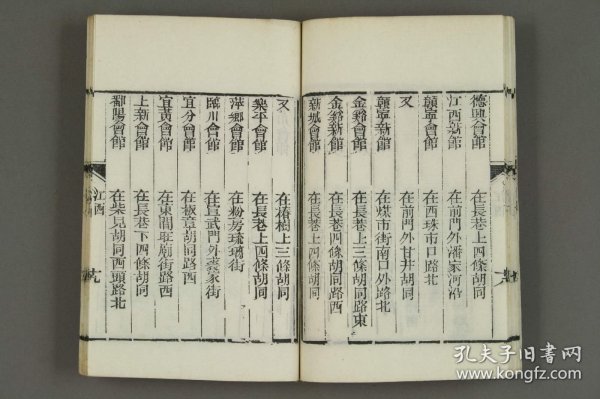 德興會館 在長巷上四條胡同
江西新館 在前門外潘家河沿
贛寧會館 在西珠市口路北
又 在前門外甘井胡同
贛寧新館 在煤市街南口外路北
金谿會館 在長巷上三條胡同路東
金谿新館 在長巷四條胡同路西
新城會館 在長巷上四條胡同
又 在椿樹上三條胡同
樂平會館 在長巷上四條胡同
萍鄉會館 在粉房琉璃街
臨川會館 在宣武門外
宜分會館 在板章胡同路西
宜黃會館 在東閻王廟街路西
上新會館 在長巷下四條胡同
鄱陽會館 在柴兒胡同西頭路北
江西
孔夫子旧书网
www.kongfz.com